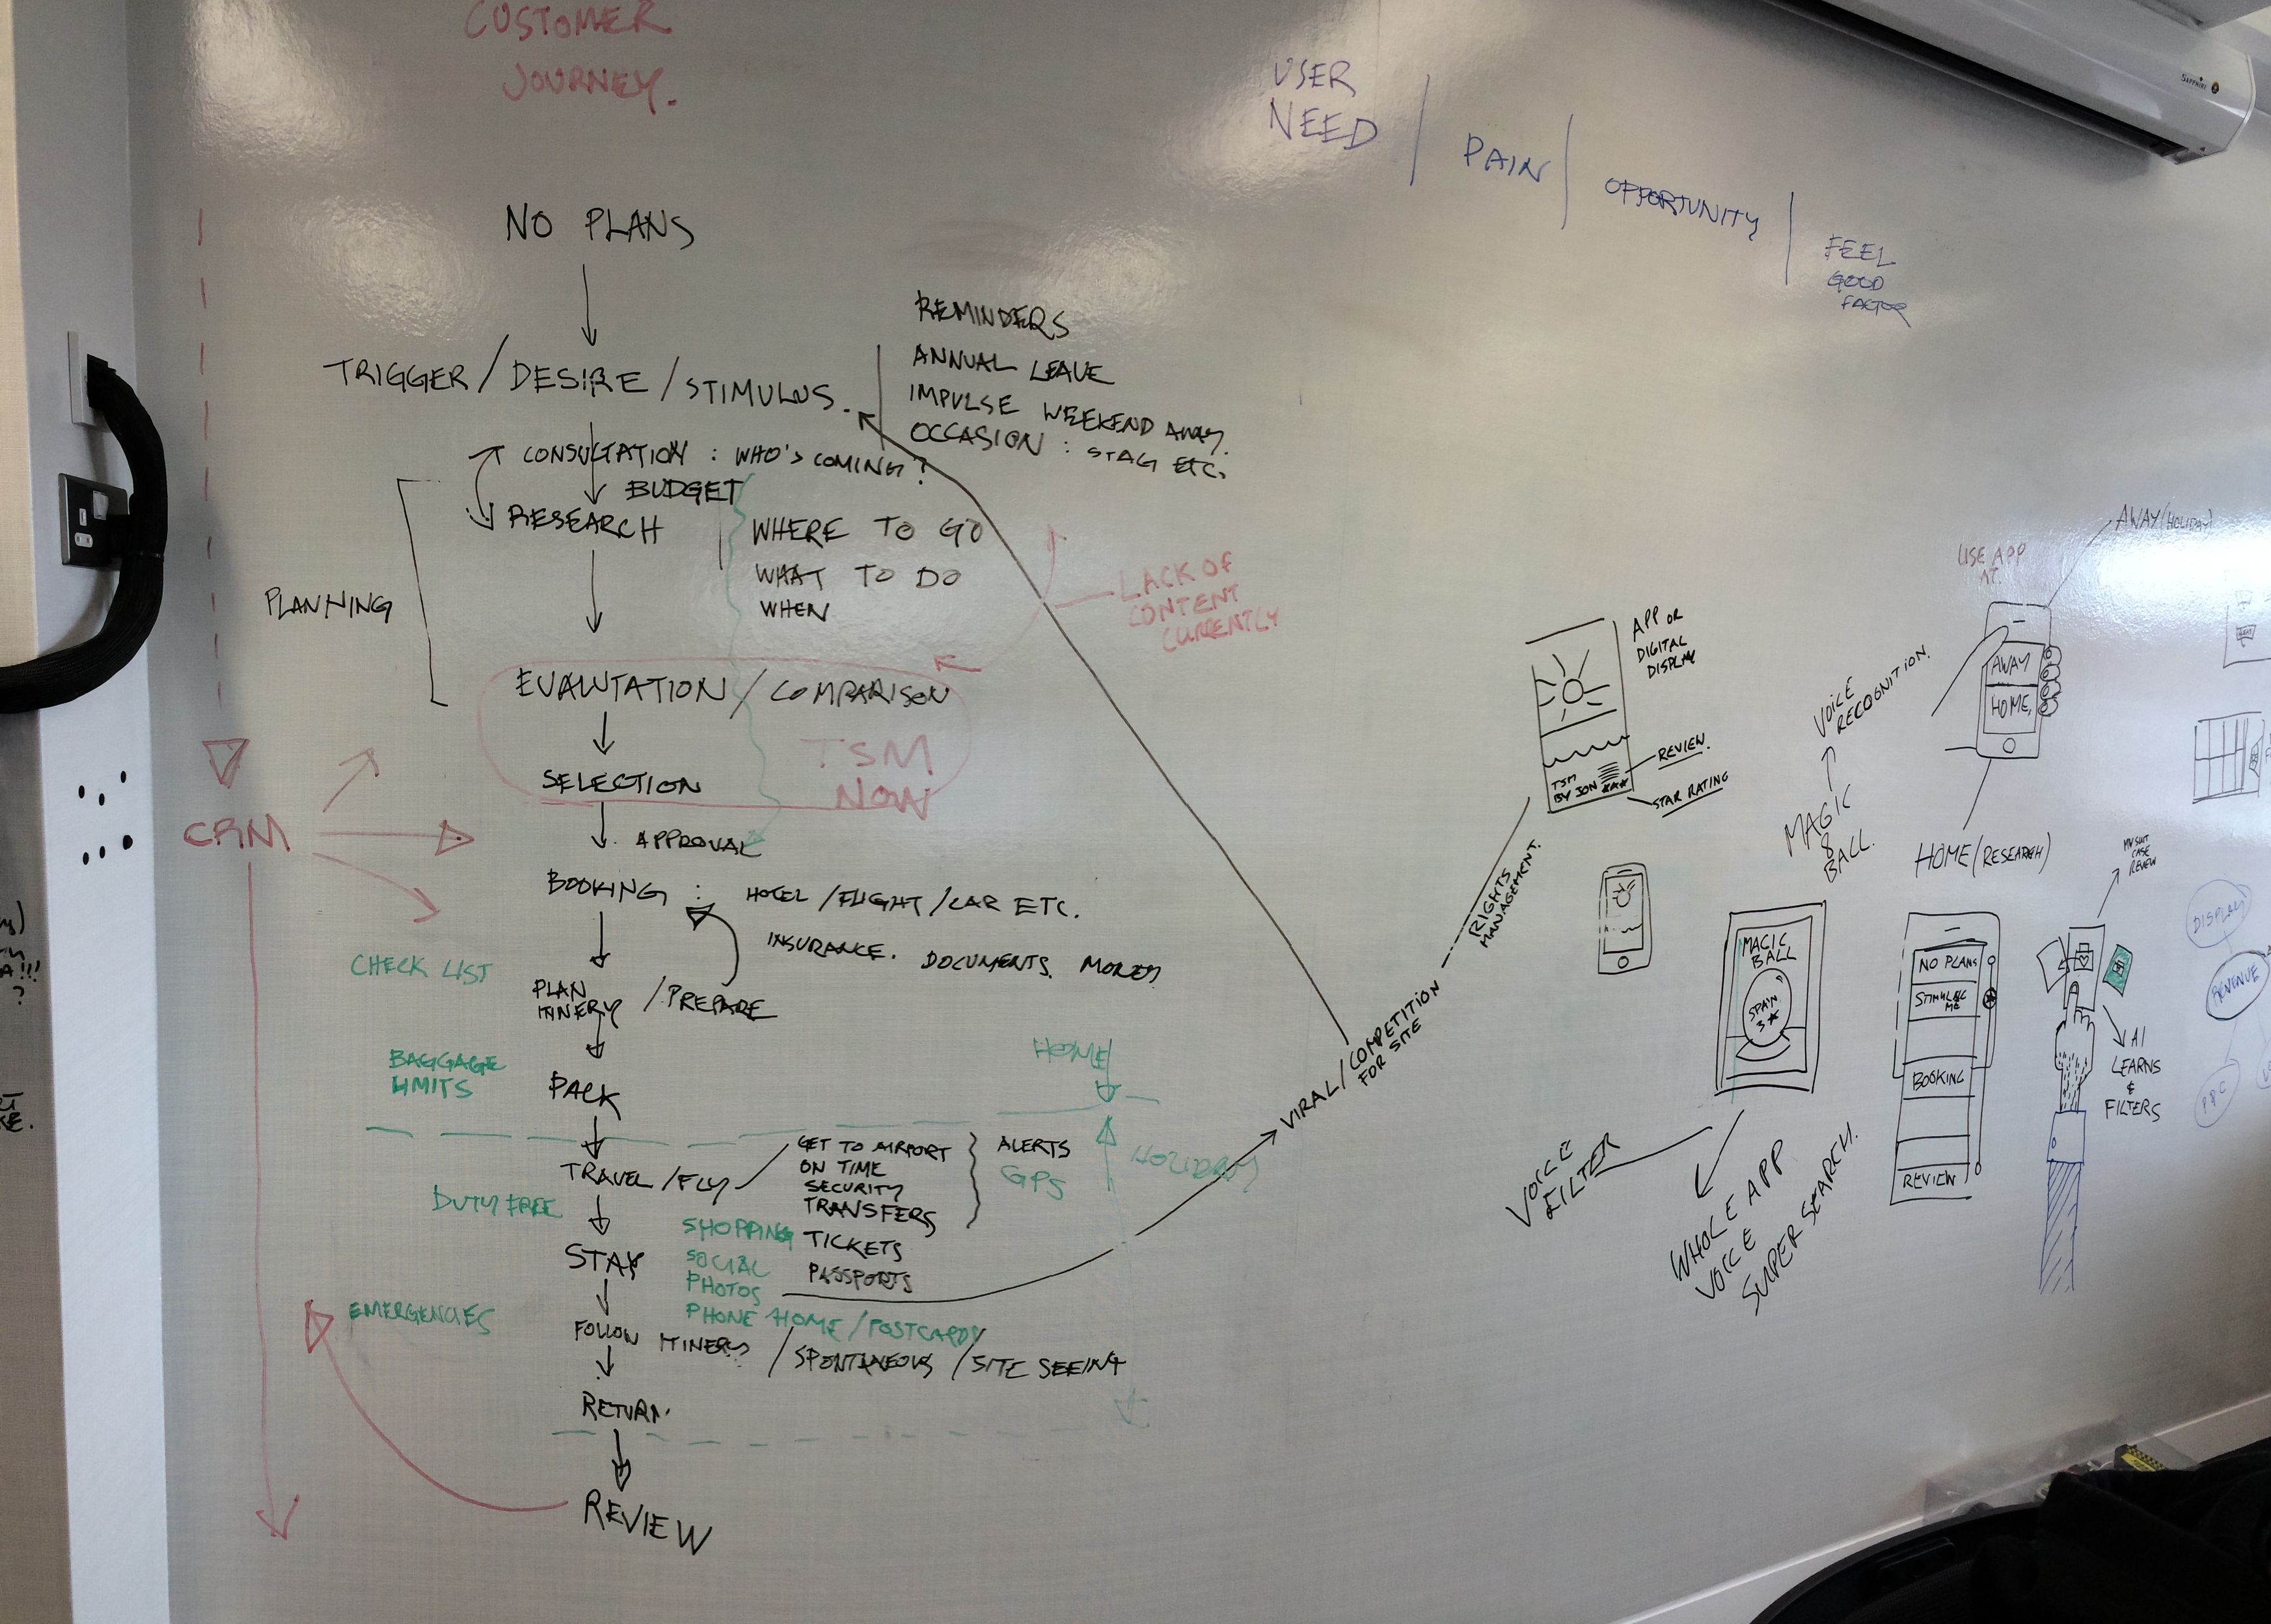 CUSTOMER
JOURNEY.
USER
NEED
PAIN
OPPORTUNITY
FEEL
GOOD
FACTOR
NO PLANS
TRIGGER / DESIRE / STIMULUS.
REMINDERS
ANNUAL LEAVE
IMPULSE WEEKEND AWAY.
OCCASION : STAG ETC.
CONSULTATION : WHO'S COMING?
BUDGET
RESEARCH
WHERE TO GO
WHAT TO DO
WHEN
PLANNING
LACK OF
CONTENT
CURRENTLY
EVALUTATION / COMPARISON
TSM
NOW
SELECTION
CRM
APPROVAL
BOOKING : HOTEL / FLIGHT / CAR ETC.
INSURANCE. DOCUMENTS. MONEY
CHECK LIST
PLAN
ITINERY / PREPARE
BAGGAGE
LIMITS
PACK
HOME
HOLIDAY
TRAVEL / FLY
GET TO AIRPORT
ON TIME
SECURITY
TRANSFERS
TICKETS
PASSPORTS
ALERTS
GPS
DUTY FREE
STAY
SHOPPING
SOCIAL
PHOTOS
PHONE HOME / POSTCARDS
EMERGENCIES
FOLLOW ITINERY / SPONTANEOUS / SITE SEEING
RETURN
REVIEW
VIRAL / COMPETITION
FOR SITE
RIGHTS
MANAGEMENT.
APP OR
DIGITAL
DISPLAY
TSM
BY JON
REVIEW.
STAR RATING
VOICE
RECOGNITION.
MAGIC
8
BALL.
MAGIC
BALL
SPAIN
3★
VOICE
FILTER
WHOLE APP
VOICE
SUPER SEARCH.
USE APP
AT.
AWAY (HOLIDAY)
AWAY
HOME,
HOME (RESEARCH)
NO PLANS
ME
BOOKING
REVIEW
CASE
REVIEW
AI
LEARNS
&
FILTERS
DISPLAY
REVENUE
PPC
Sapphire